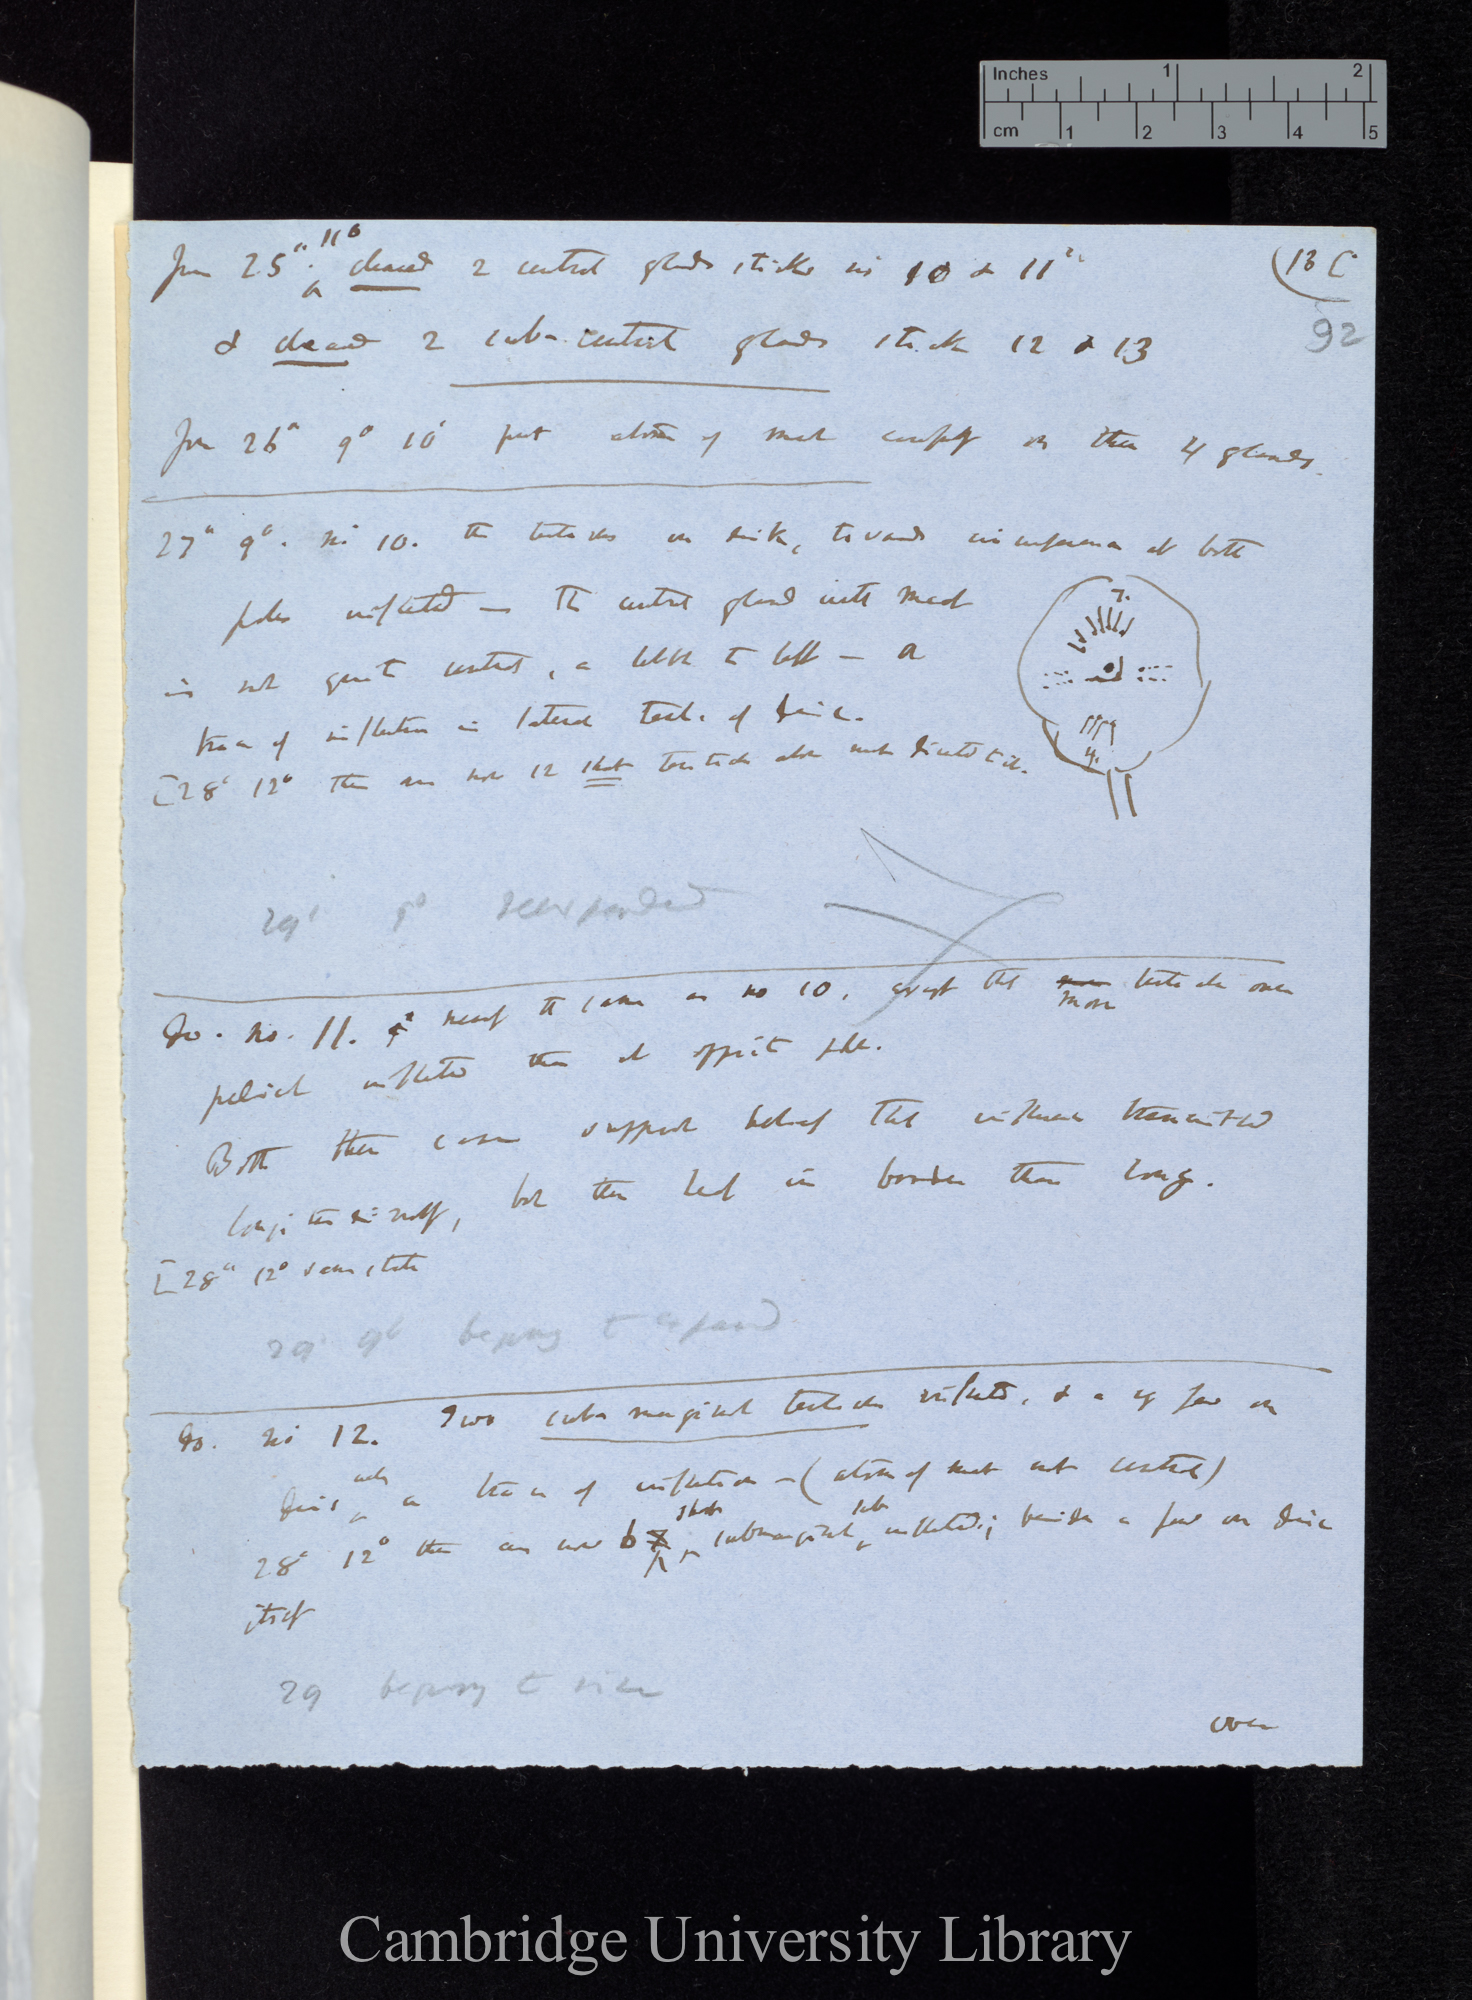 Inches 1 2
cm 1 2 3 4 5
(13 C
92
Jun 25" 11° cleaned 2 central glands sticks no 10 & 11
& cleaned 2 sub-central glands stick 12 & 13
Jun 26" 9° 10' put atom of meat carefully on these 4 glands.
27" 9°. No 10. The tentacles on disk, towards circumference at both
poles inflected — The central gland with meat
is not quite central, a little to left — a
trace of inflection in lateral tent. of disc.
7.
4.
[28" 12° there are now 12 short tentacles
29" 9° reexpanded
Do. No. 11. nearly the same as no 10, except that more tentacles over
pedicel inflected than at opposite pole.
Both these cases support belief that influence transmitted
longitudinally, but these leaf is broader than long.
[28" 12° same state
29" 9° beginning to expand
Do. No 12. Two sub-marginal tentacles inflected, & a very few on
disc, with a trace of inflection — (atom of meat not central)
28" 12° there are now 6 short submarginal tent inflected; besides a few on disc
itself
29 beginning to
over
Cambridge University Library